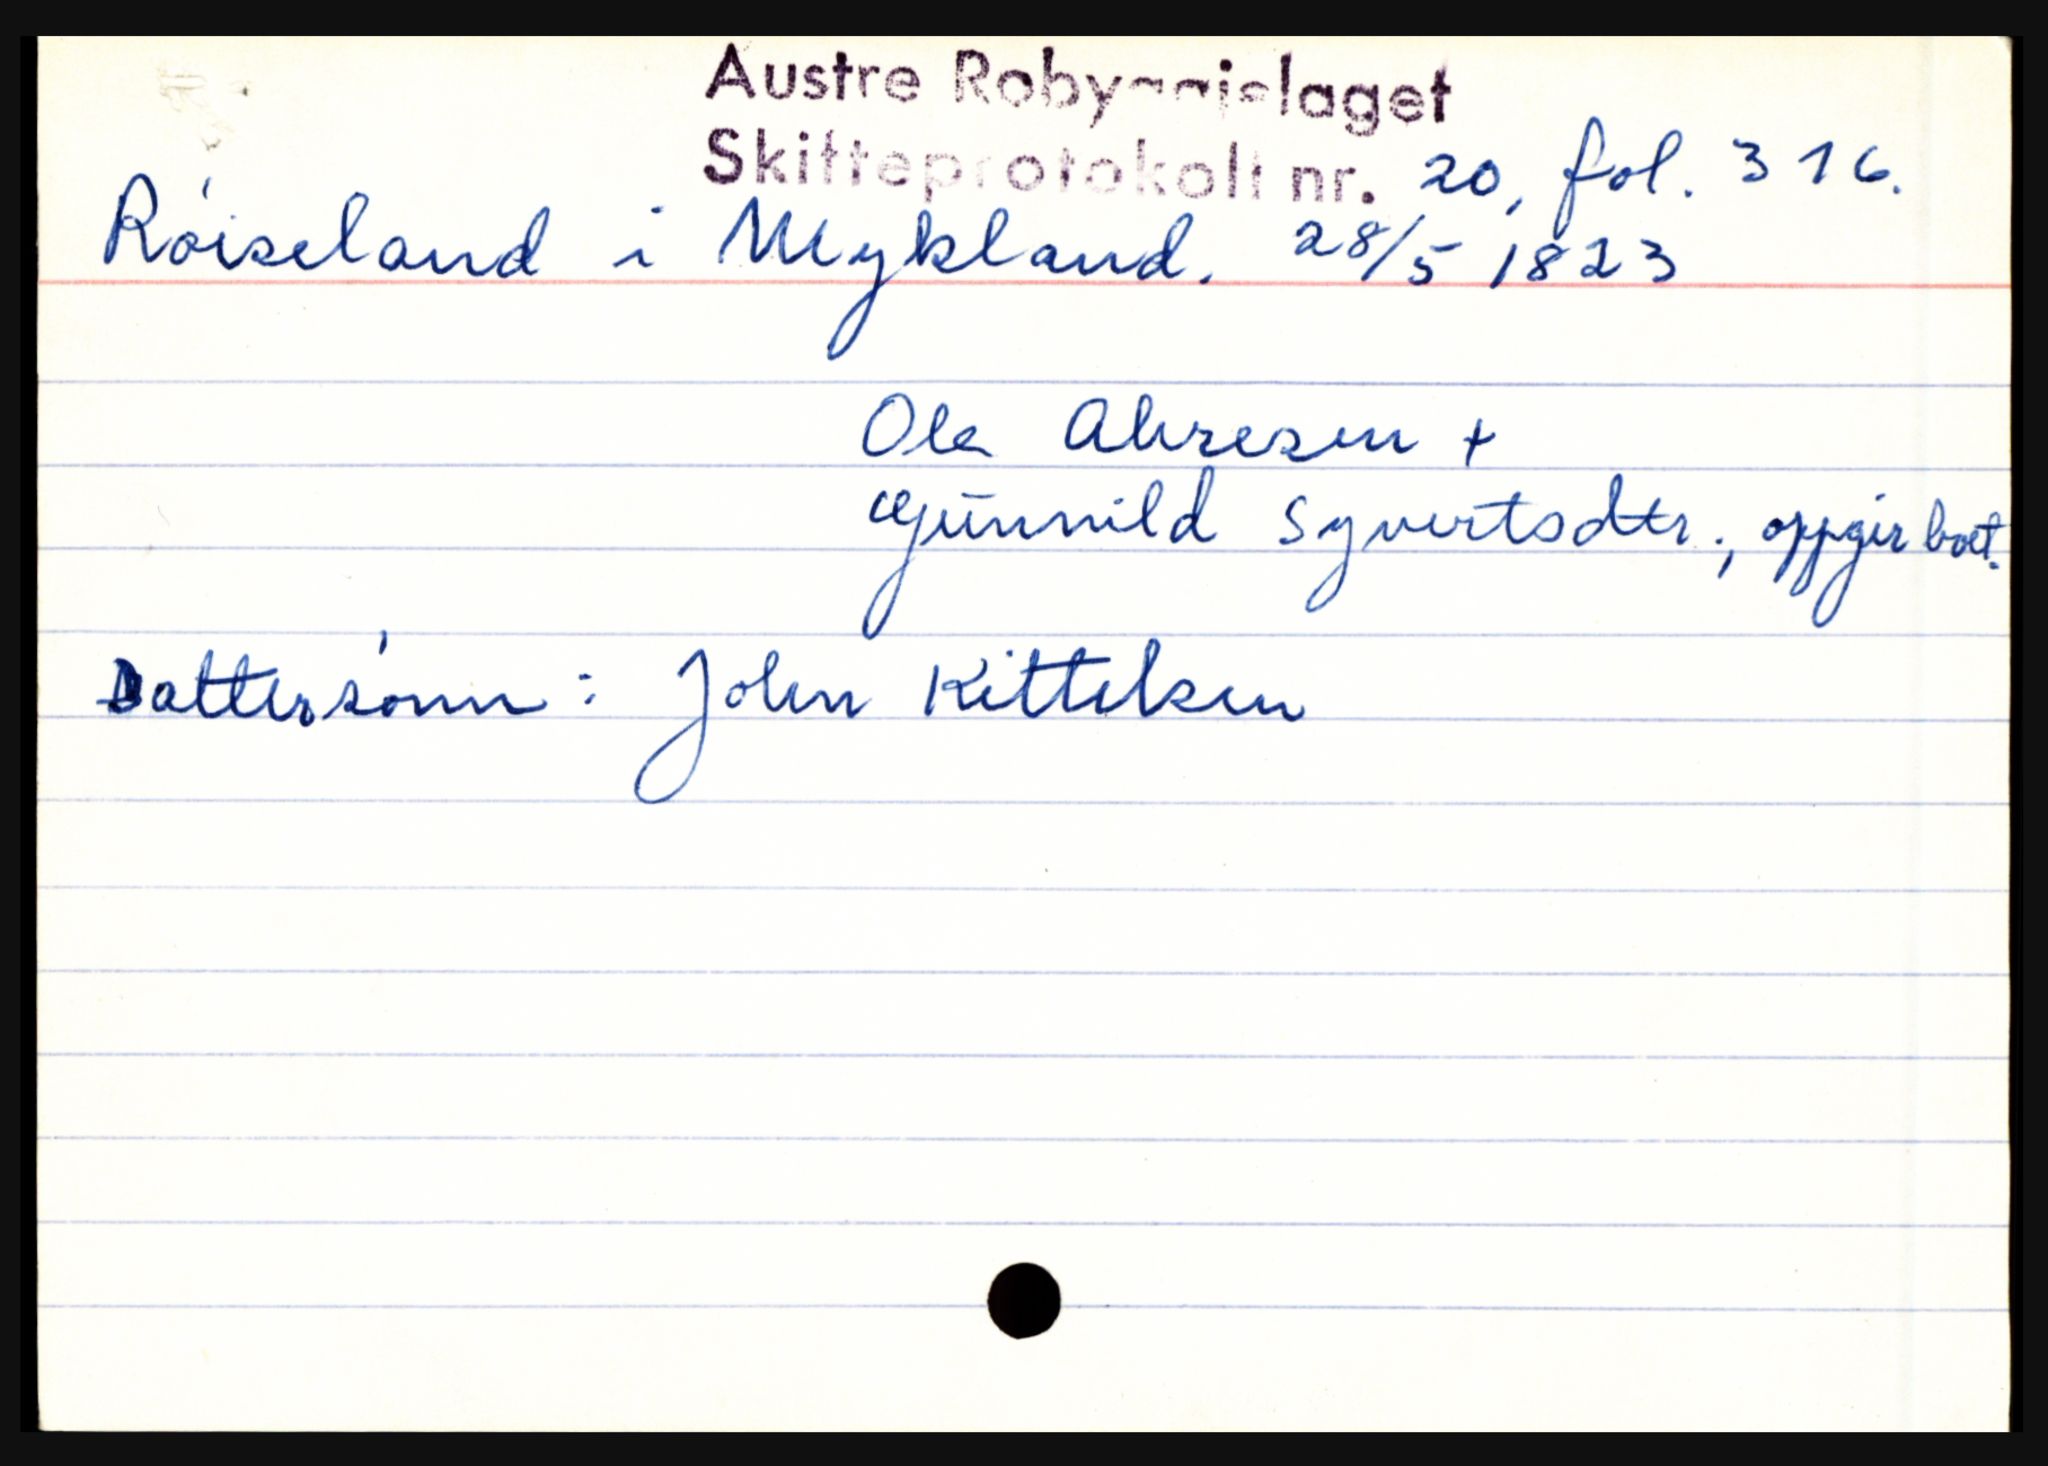 Austre Robyggjelaget
Skifteprotokoll nr. 20, fol. 316.
Røiseland i Mykland. 28/5 1823
Ola Alvresen +
Gunnild Syvertsdtr., oppgir boet.
Dattersønn: John Kittelsen